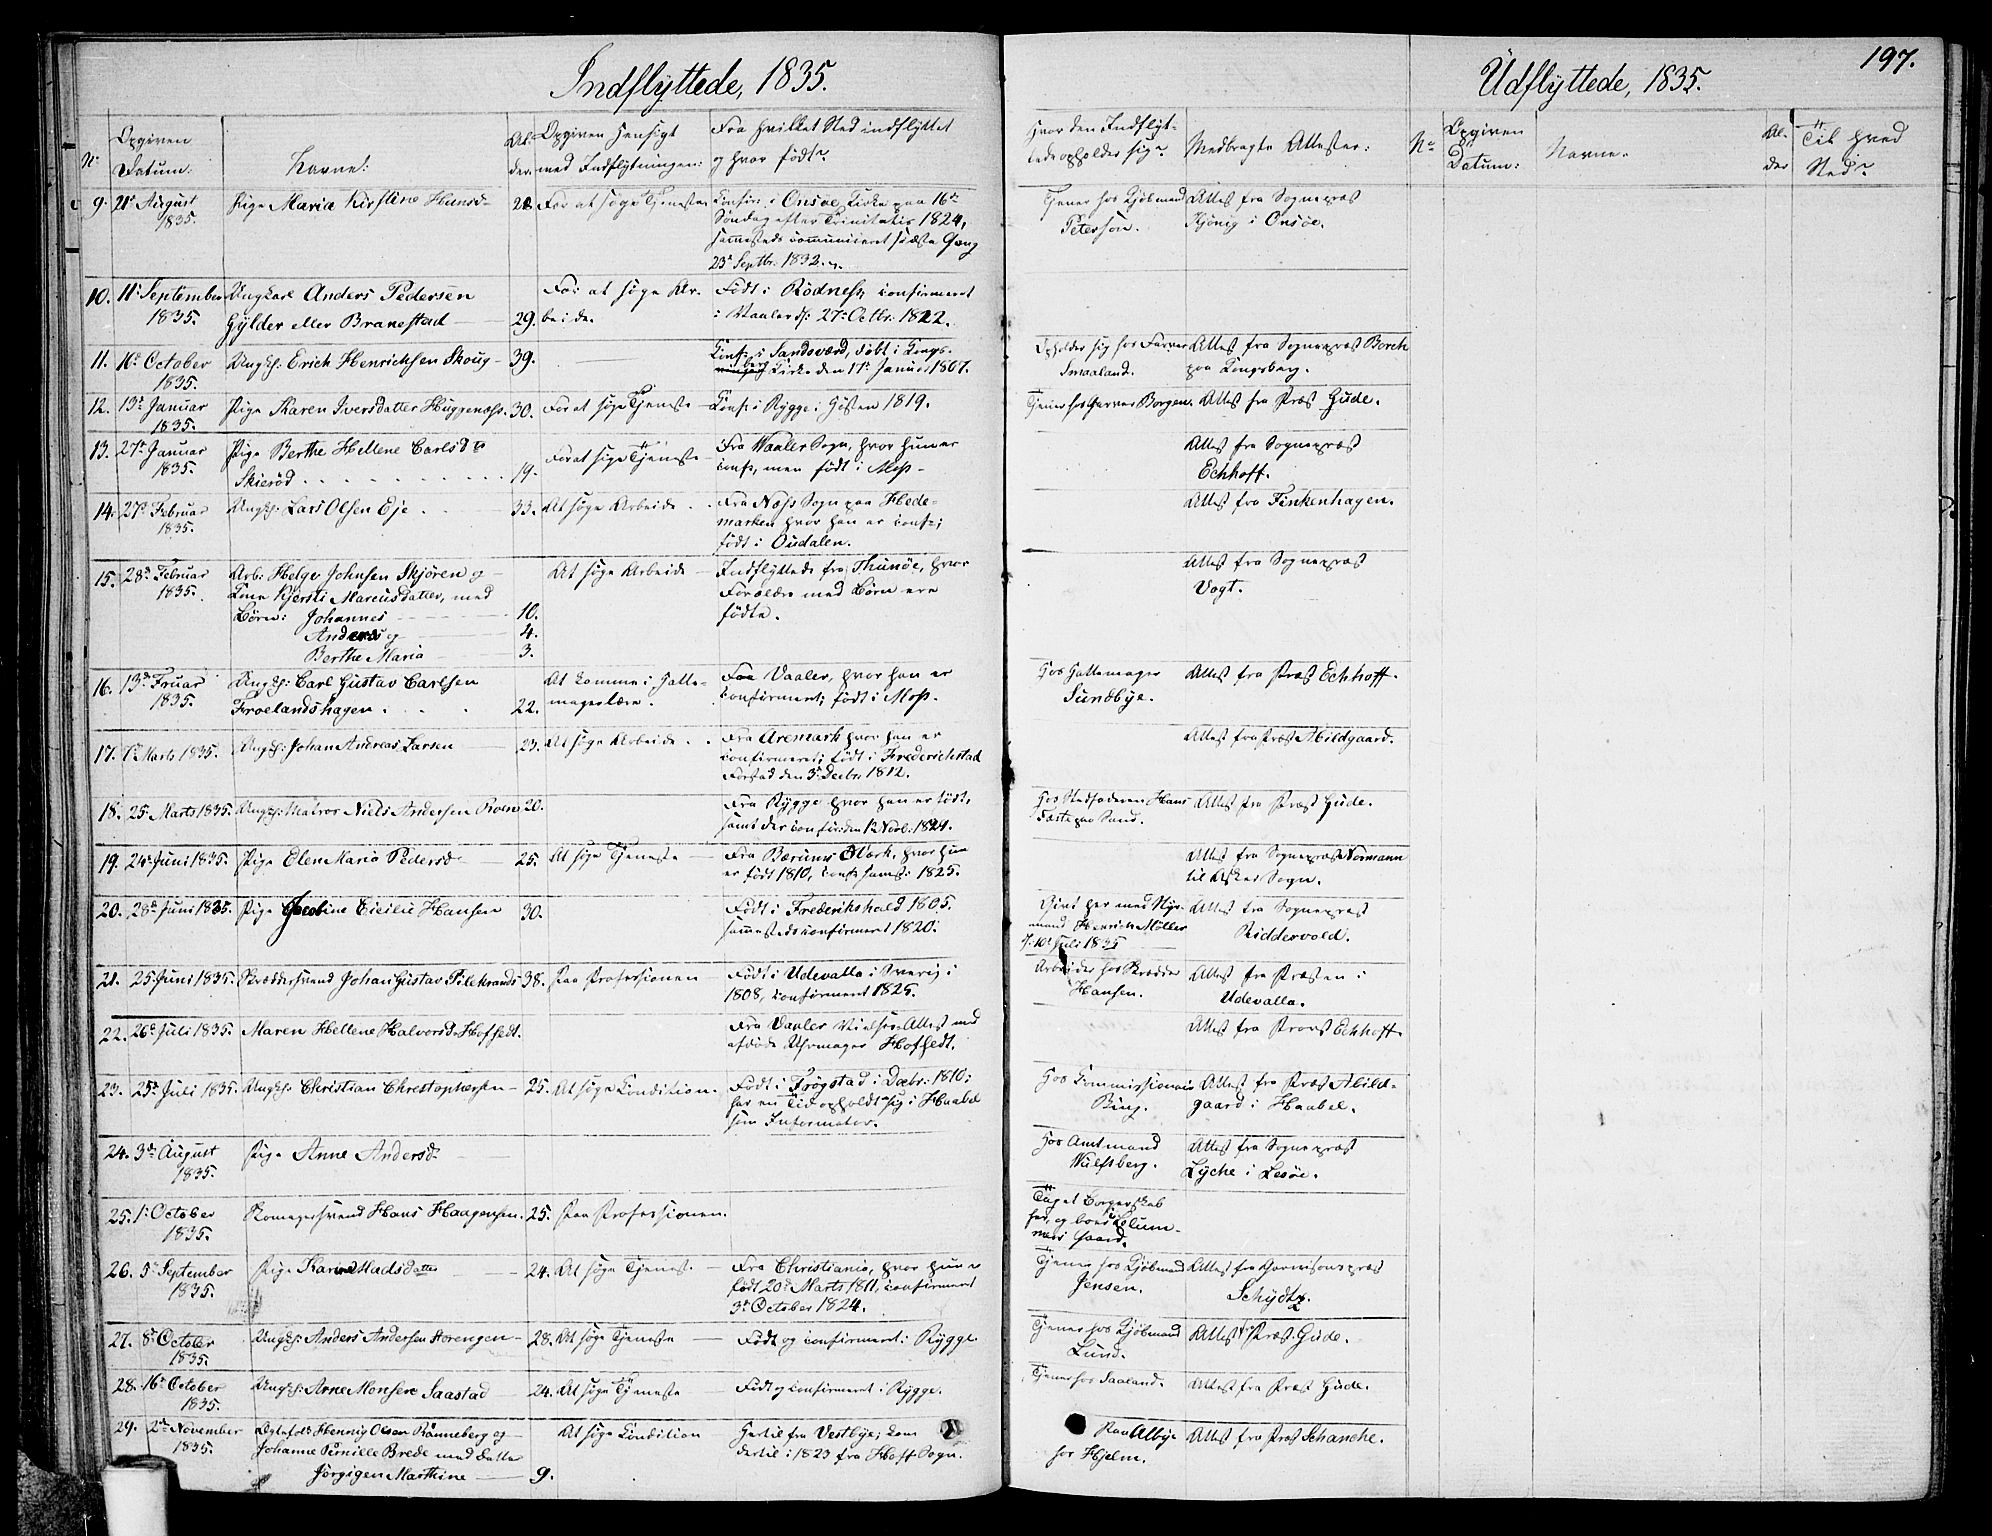 Indflyttede, 1835.
Udflyttede, 1835.
197.
No
Opgiven Datum:
Navne:
Alder.
Opgiven Hensigt med Indflytningen:
Fra hvilket Sted indflyttet og hvor født?
Hvor den Indflyttede opholder sig?
Medbragte Attester:
No
Opgiven Datum:
Navne.
Alder
Til hvad Sted?
9. 21de August 1835.
Pige Maria Kirstine Hansd.
28.
For at søge Tjeneste
Confir. i Onsøe Kirke paa 16de
Søndag efter Trinitatis 1824,
sammesteds communiceret sidste Gang
23de Septbr. 1832.
Tjener hos Kjøbmand Peterson.
Attest fra Sognepræst
i Onsøe.
10. 11te September 1835.
Ungkarl Anders Pedersen
Gylder eller Branestad
29.
For at søge Arbeide.
Født i Rödness, confirmeret
i Vaaler d. 27de Octbr. 1822.
11. 16de October 1835.
Ungk. Erich Henrichsen Skoug
39.
Conf. i Sandsværd, døbt i Kongsberg
Kirke den 11te Januar 1807.
Opholder sig hos Farver Smaaland.
Attest fra Sognepræst Borch
paa Kongsberg.
12. 13de Januar 1835.
Pige Karen Iversdatter Huggenæss.
30.
For at søge Tjeneste
Conf. i Rygge i Høsten 1819.
Tjener hos Garver Borgen.
Attest fra Præst Gude.
13. 27de Januar 1835.
Pige Berthe Hellene Carlsd
Skieröd
19.
For at søge Tjeneste
Fra Vaaler Sogn, hvor hun er
conf., men født i Moss.
Attest fra Sognepræst
Echhoff.
14. 27de Februar 1835.
Ungk. Lars Olsen Eje
33.
At søge Arbeide
Fra Næss Sogn paa Hede-
marken hvor han er conf.;
født i Oudalen.
Attest fra Finkenhagen.
15. 28de Februar 1835.
Arb. Helge Johnsen Skjören og
Kone Kjersti Marcusdatter, med
Børn: Johannes 10.
Anders og 4.
Berthe Maria 3.
At søge Arbeide
Indflyttede fra Thunöe, hvor
Forældre med Børn ere
fødte.
Attest fra Sognepræst
Vogt.
16. 13de Fruar 1835.
Ungk. Carl Gustav Carlsen
Froelandshagen
22.
At komme i Hatte-
magerlære.
Fra Vaaler, hvor han er
confirmeret; født i Moss.
Hos Hattemager Sundbye.
Attest fra Præst Echhoff.
17. 1ste Marts 1835.
Ungk. Johan Andreas Larsen
23.
At søge Arbeide
Fra Aremark hvor han er
confirmeret; født i Frederichstad
Forstad den 3de Decbr. 1812.
Attest fra Præst Abildgaard.
18. 25. Marts 1835.
Ungk. Matros Niels Andersen Roer
20.
Fra Rygge hvor han er født,
samt der confir. den 12 Novb. 1824.
Hos Stedfaderen Hans
paa Sand.
Attest fra Præst Gude.
19. 24de Juni 1835.
Pige Elen Maria Pedersd
25.
At søge Tjeneste
Fra Bærums Værk, hvor hun
er født 1810, conf. samst. 1825.
Attest fra Sognepræst Normann
til Asker Sogn.
20. 28de Juni 1835.
Pige Jacobine Cicilie Hansen
30.
Født i Frederikshald 1805.
sammesteds confirmeret 1820.
Givt her med Styr-
mand Henrich Möller
d. 10de Juli 1835
Attest fra Sognepræst
Riddervold.
21. 25 Juni 1835.
Skræddersvend Johan Gustav Pilekrands
38.
Paa Professionen
Født i Udevalla i Sverig i
1808, confirmeret 1825.
Arbeider hos Skrædder
Hansen.
Attest fra Præsten i
Udevalla.
22. 26de Juli 1835.
Maren Hellene Halvorsd. Hofsedt.
Fra Vaaler Vielses-Attest med
afdøde Uhrmager Hofsedt.
Attest fra Provst Echhoff.
23. 25de Juli 1835.
Ungk. Christian Chrestophersen
25.
At søge Condition.
Født i Trögstad i Decbr. 1810;
har en Tid opholdt sig i Haabel
som Informator.
Hos Commissionair
Bing.
Attest fra Præst Abild-
gaard i Haabel.
24. 3de August 1835.
Pige Anne Andersd
Hos Amtmand
Wulfsberg.
Attest fra Sognepræst
Lyche i Lesöe.
25. 1. October 1835.
Skomagersvend Hans Haagensen.
25.
Paa Professionen.
Taget Borgerskab
her, og boer i Blum-
mers Gaard.
26. 5te September 1835.
Pige Karen Madsdatter
24.
At søge Tjenest.
Fra Christiania, hvor hun er
født 20de Marts 1811, confirmeret
3de October 1824.
Tjener hos Kjøbmand
Jensen.
Attest fra Garnisonspræst
Schydtz.
27. 8de October 1835.
Ungk. Anders Andersen Storengen
28.
At søge Tjeneste
Født og confirmeret i Rygge.
Tjener hos Kjøbmand
Lund.
Attest fra Præst Gude.
28. 16de October 1835.
Ungk. Arne Monsen Saastad
24.
At søge Tjeneste
Født og confirmeret i Rygge.
Tjener hos Saaland.
Attest fra Præst Gude.
29. 2den November 1835.
Ægtefolk Hennig Olsen Rönneberg og
Johanne Pernille Brede med Datter
Jörgigen Marthine
9.
At søge Condition
Hertil fra Vestbye; kom
dertil i 1823 fra Hoff Sogn.
Paa Albye
hos Hjelm.
Attest fra Præst Schanche.